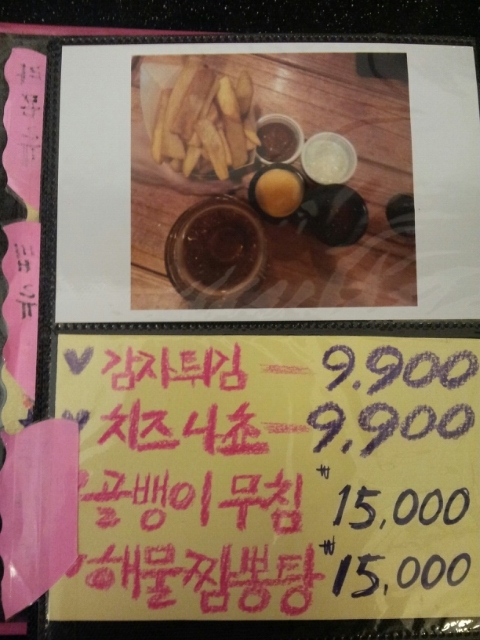 감자튀김 9,900
치즈나쵸 9,900
골뱅이무침 ₩15,000
해물짬뽕탕 ₩15,000